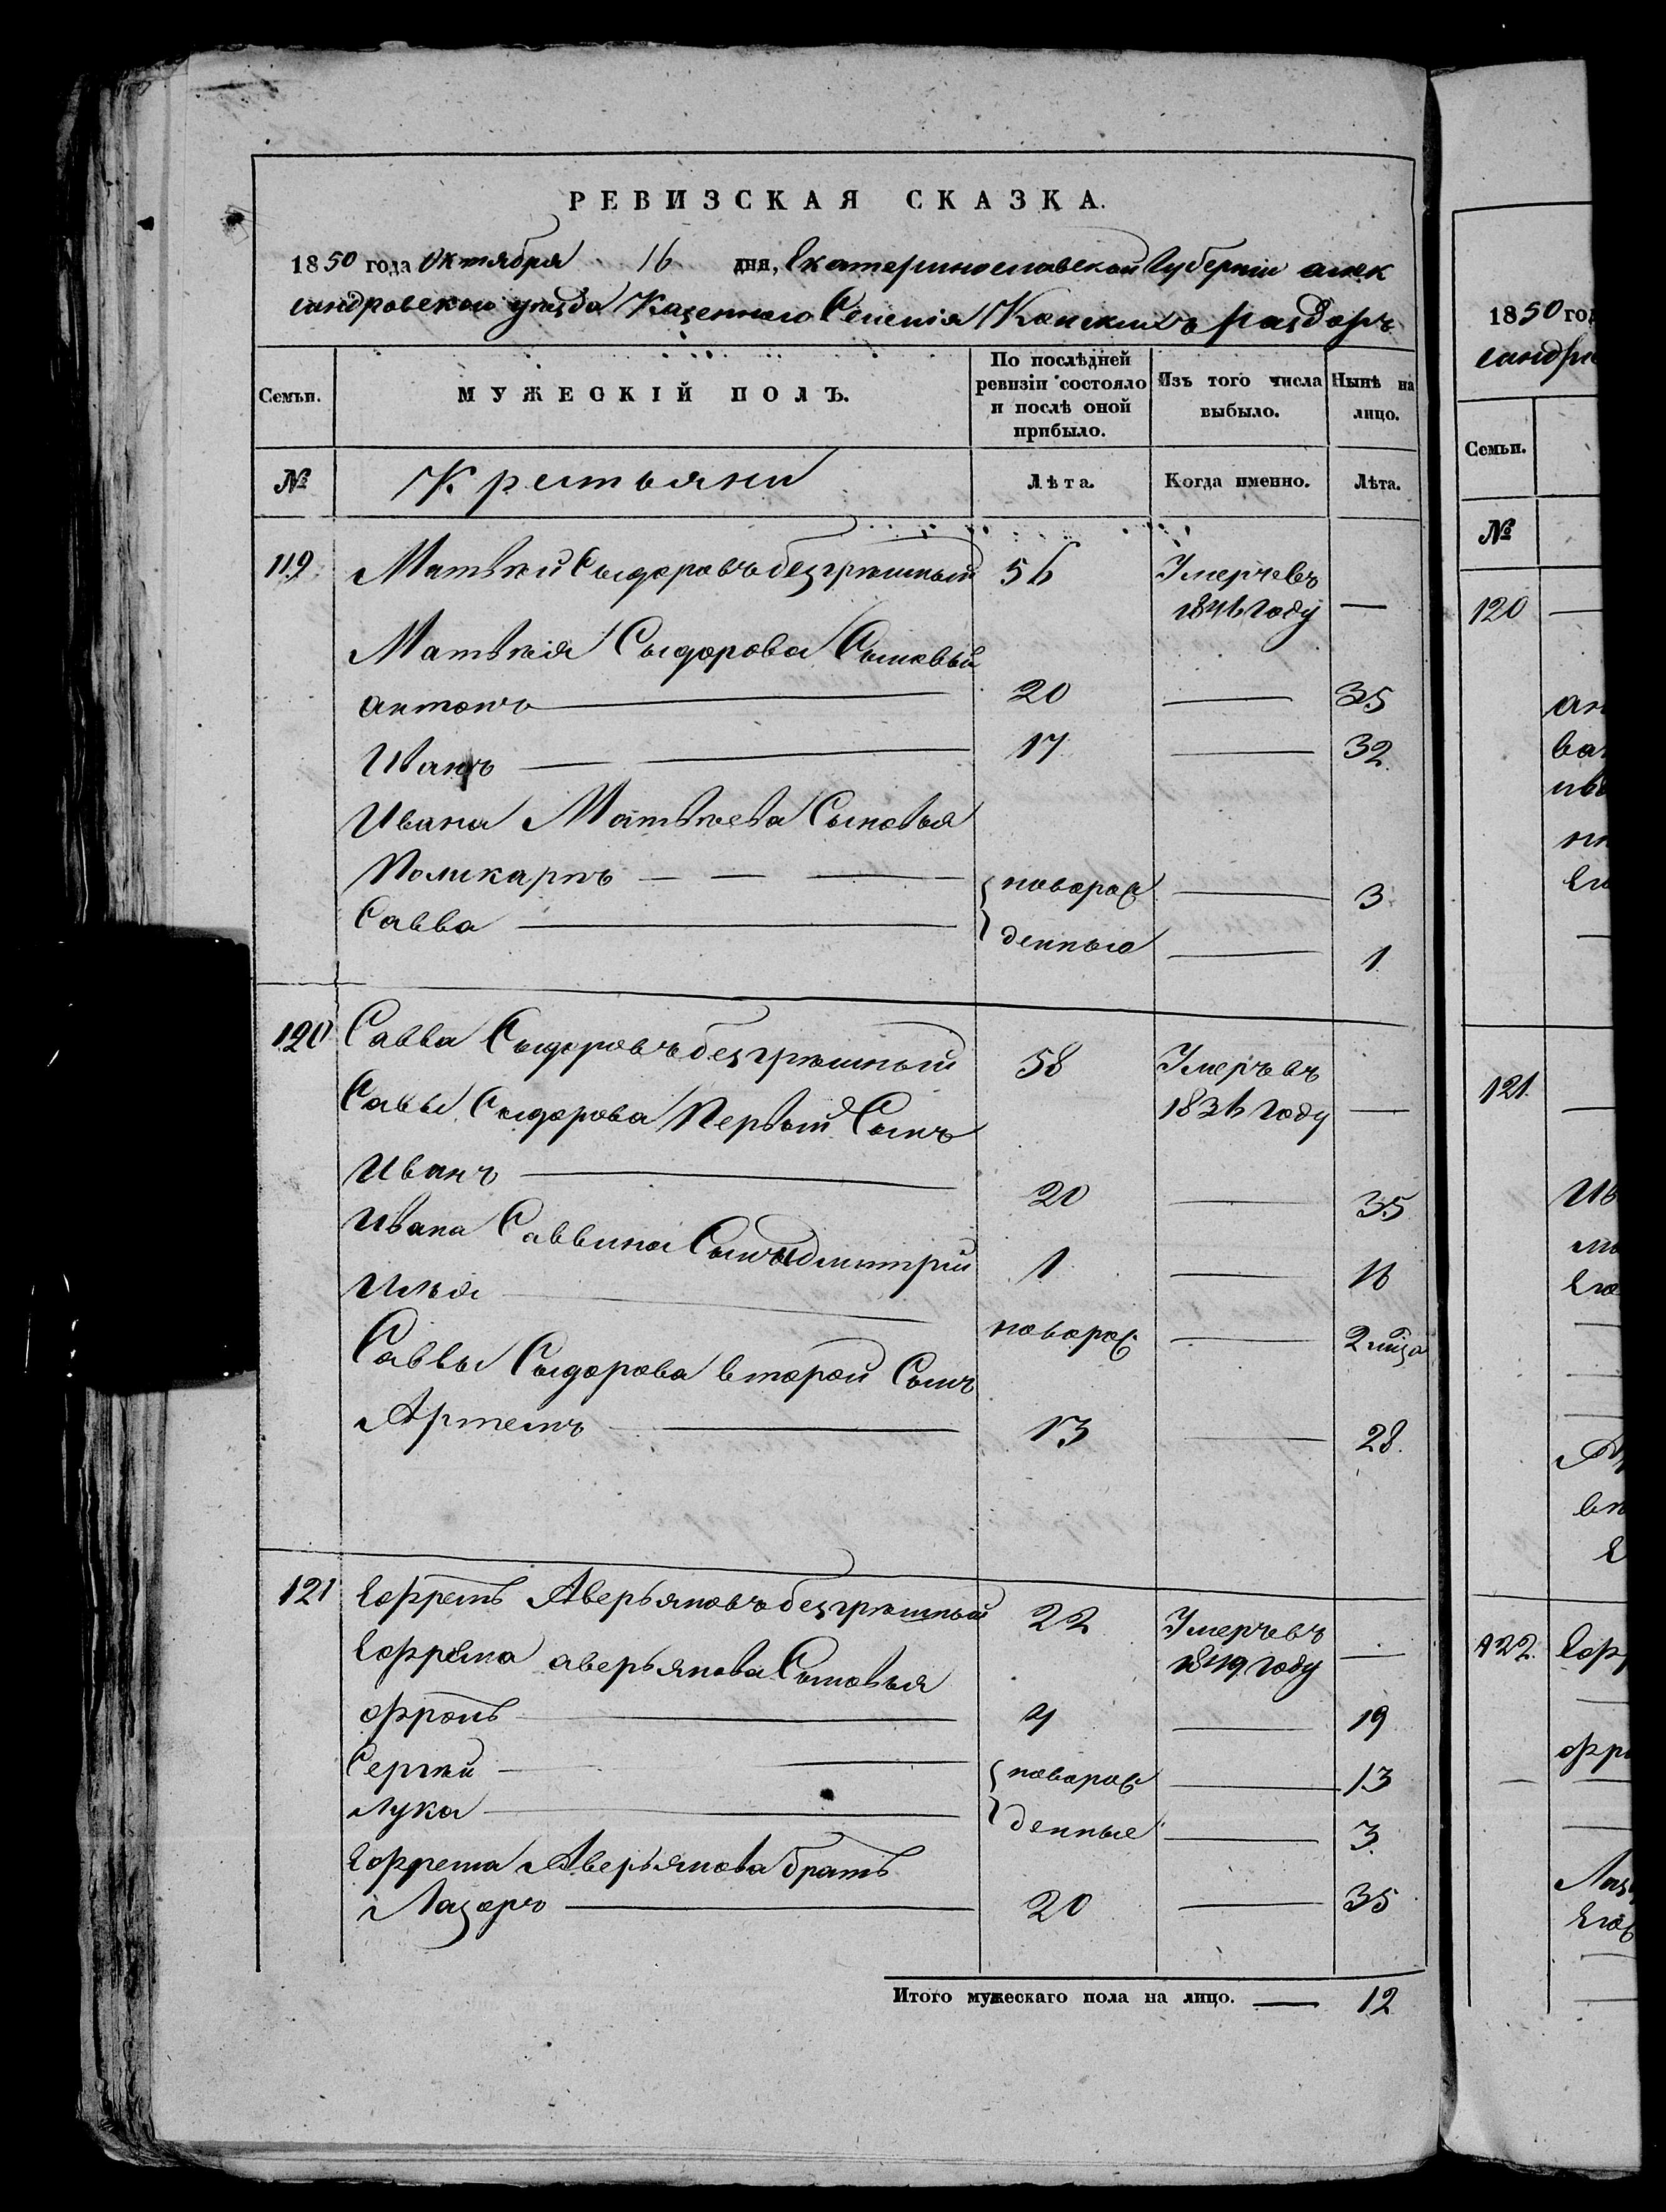 РЕВИЗСКАЯ СКАЗКА.
1850 года Октября 16 дня, Екатеринославской Губерніи алек
сандровского уезда Казенного Селенія Конскихъ раздоръ
Семьи. МУЖЕСКІЙ ПОЛЪ. По послѣдней ревизіи состояло и послѣ оной прибыло. Изъ того числа выбыло. Нынѣ на лицо.
№ Крестьяни Лѣта. Когда именно. Лѣта.
119 Матвѣй Сыдоровъ безгрѣшный 56 Умеръ въ
1846 году —
Матвѣя Сыдорова Сыновья
антонъ — 20 — 35
Иванъ — 17 — 32
Ивана Матвѣева Сыновья
Поликарпъ — новорож — 3
Савва — денныя — 1
120 Савва Сыдоровъ безгрѣшный 58 Умеръ въ
Савы Сыдорова Первый Сынъ 1836 году —
Иванъ — 20 — 35
Ивана Саввина Сыны дмитрій 1 — 16
Илья — новорож — 2 мѣца
Саввы Сыдорова второй Сынъ
Артемъ — 13 — 28.
121 Ефремъ Аверьяновъ безгрѣшный 22 Умеръ въ
Ефрема аверьянова Сыновья 1849 году —
Фролъ — 4 — 19
Сергѣй — новорож — 13
Лука — денные — 3
Ефрема Аверьянова братъ
Лазарь — 20 — 35
Итого мужескаго пола на лицо. — 12
1850 год
сандро
Семьи.
№
120 —
ан
ва
121. —
Ив
122. Ефр
Лаз